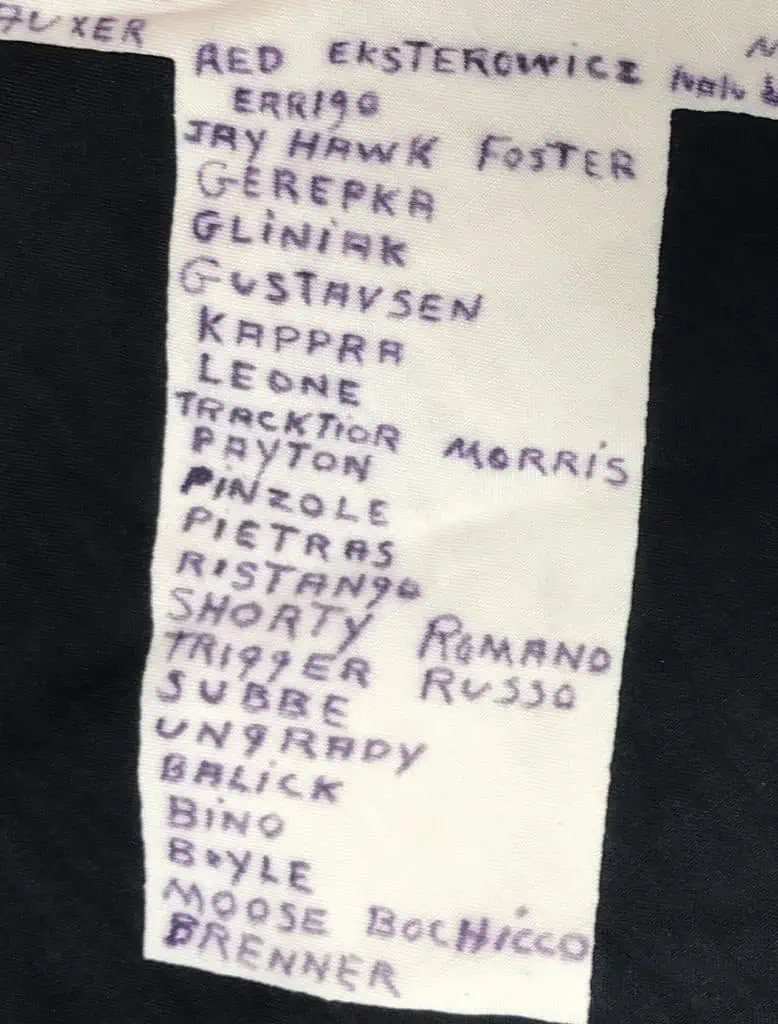 RED EKSTEROWICZ
ERRIgO
JAY HAWK FOSTER
GEREPKA
GLiNiAK
GUSTAVSEN
KAPPRA
LEONE
TRACKTiOR MORRiS
PAYTON
PiNZOLE
PIETRAS
RISTANgO
SHORTY ROMANO
TRIggER RUSSO
SUBBE
UNgRADY
BALiCK
BiNO
BOYLE
MOOSE BOCHiCCO
BRENNER